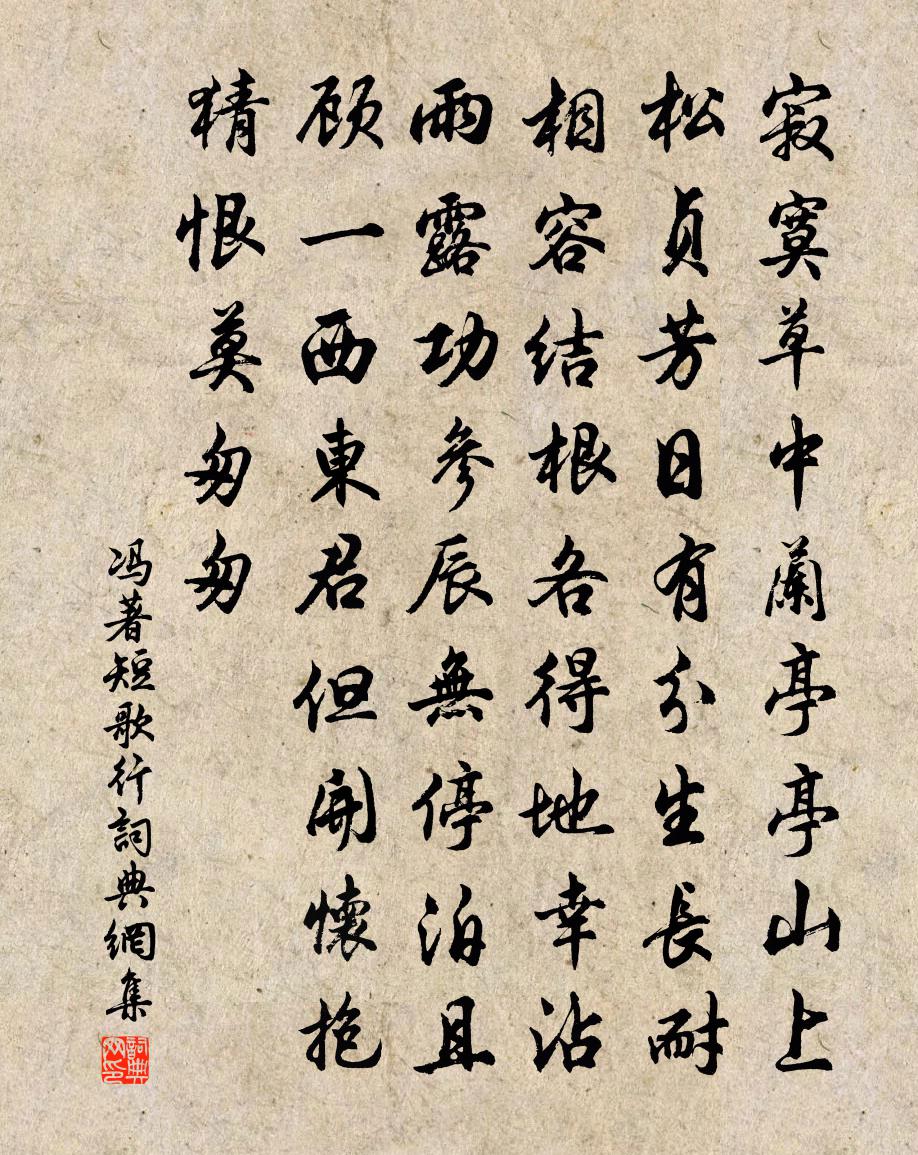 寂寞草中蘭亭亭山上
松貞芳日有分生長耐
相容結根各得地幸沾
雨露功參辰無停泊且
顾一西東君但開懷抱
猜恨莫匆匆
冯著短歌行詞典網集
詞典网印